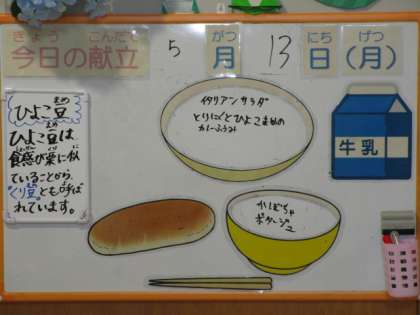 きょう こんだて
今日の献立
5 がつ 月 13 にち 日 げつ (月)
ひよこ豆 まめ
ひよこ豆は
食感が栗に似
ていることから、
"くり豆"とも呼ば
れています。
イタリアンサラダ
とりにくとひよこまめの
カレーふうみ
牛乳
かぼちゃ
ポタージュ